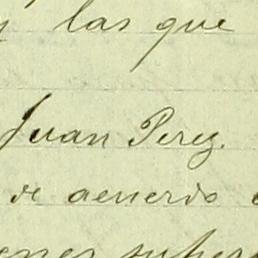 y las que
Juan Perez.
de acuerdo